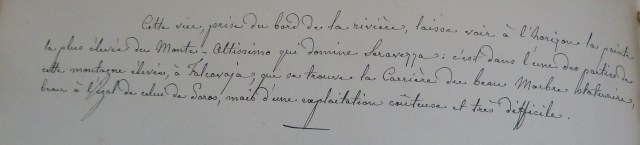 Cette vue, prise du bord de la rivière, laisse voir à l'horizon la pointe
la plus élevée du Monte-Altissimo qui domine Seravezza; c'est dans l'une des parties de
cette montagne élevée, à Falcovaja, que se trouve la Carrière du beau Marbre statuaire,
beau à l'égal de celui de Paros, mais d'une exploitation coûteuse et très difficile.